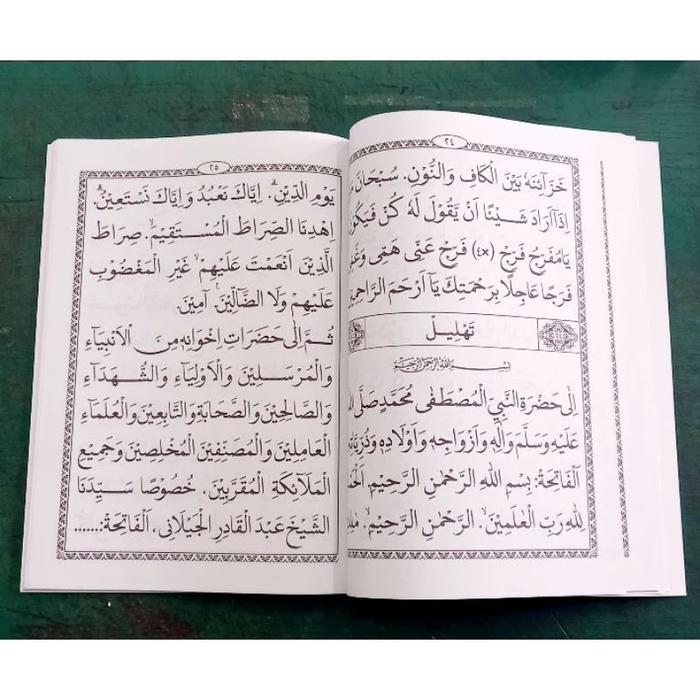 ٢٤
خَزَآئِنُهٗ بَيْنَ الْكَافِ وَالنُّوْنِ. سُبْحَانَ
اِذَآ اَرَادَ شَيْئًا اَنْ يَقُوْلَ لَهٗ كُنْ فَيَكُوْنُ
يَا مُفَرِّجُ فَرِّجْ (×٤) فَرِّجْ عَنِّى هَمِّى وَغَمِّى
فَرَجًا عَاجِلًا بِرَحْمَتِكَ يَآ اَرْحَمَ الرَّاحِمِيْنَ
تَهْلِيْل
بِسْمِ اللهِ الرَّحْمٰنِ الرَّحِيْمِ
اِلَى حَضْرَةِ النَّبِيِّ الْمُصْطَفٰى مُحَمَّدٍ صَلَّى اللهُ
عَلَيْهِ وَسَلَّمَ وَآلِهِ وَاَزْوَاجِهِ وَاَوْلَادِهِ وَذُرِّيَّاتِهِ
اَلْفَاتِحَةُ: بِسْمِ اللهِ الرَّحْمٰنِ الرَّحِيْمِ. اَلْحَمْدُ
لِلّٰهِ رَبِّ الْعٰلَمِيْنَ. الرَّحْمٰنِ الرَّحِيْمِ. مٰلِكِ
٢٥
يَوْمِ الدِّيْنِ. اِيَّاكَ نَعْبُدُ وَاِيَّاكَ نَسْتَعِيْنُ.
اِهْدِنَا الصِّرَاطَ الْمُسْتَقِيْمَ. صِرَاطَ
الَّذِيْنَ اَنْعَمْتَ عَلَيْهِمْ. غَيْرِ الْمَغْضُوْبِ
عَلَيْهِمْ وَلَا الضَّآلِّيْنَ. آمِيْنَ.
ثُمَّ اِلَى حَضَرَاتِ اِخْوَانِهِ مِنَ الْاَنْبِيَاءِ
وَالْمُرْسَلِيْنَ وَالْاَوْلِيَاءِ وَالشُّهَدَاءِ
وَالصَّالِحِيْنَ وَالصَّحَابَةِ وَالتَّابِعِيْنَ وَالْعُلَمَاءِ
الْعَامِلِيْنَ وَالْمُصَنِّفِيْنَ الْمُخْلِصِيْنَ وَجَمِيْعِ
الْمَلَآئِكَةِ الْمُقَرَّبِيْنَ. خُصُوْصًا سَيِّدِنَا
الشَّيْخِ عَبْدِ الْقَادِرِ الْجَيْلَانِى، اَلْفَاتِحَةُ: ......